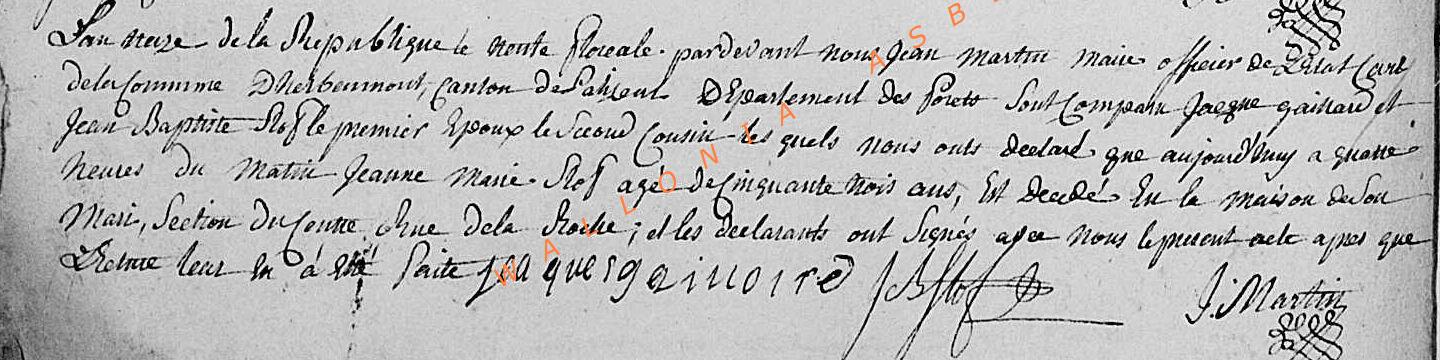 L'an treize de la Republique le trente floreale pardevant nous Jean Martin Maire officier de L'Etat Civil
de la Commune D'herbeumont, Canton de Paliseul Département des forets Sont Comparu Jacque gaillard et
Jean Baptiste Stof le premier Epoux le Second Cousin les quels nous onts declaré que aujourd'huy a quatre
heures du Matin Jeanne Marie Stof agé de Cinquante trois ans, Est decedé En la maison de Son
Mari, Section du Centre Rue de la Roche; et les declarants ont Signés avec nous le present acte apres que
Lecture leur En á eté faite Jacques JB Stof J: Martin
WALLONIA ASB